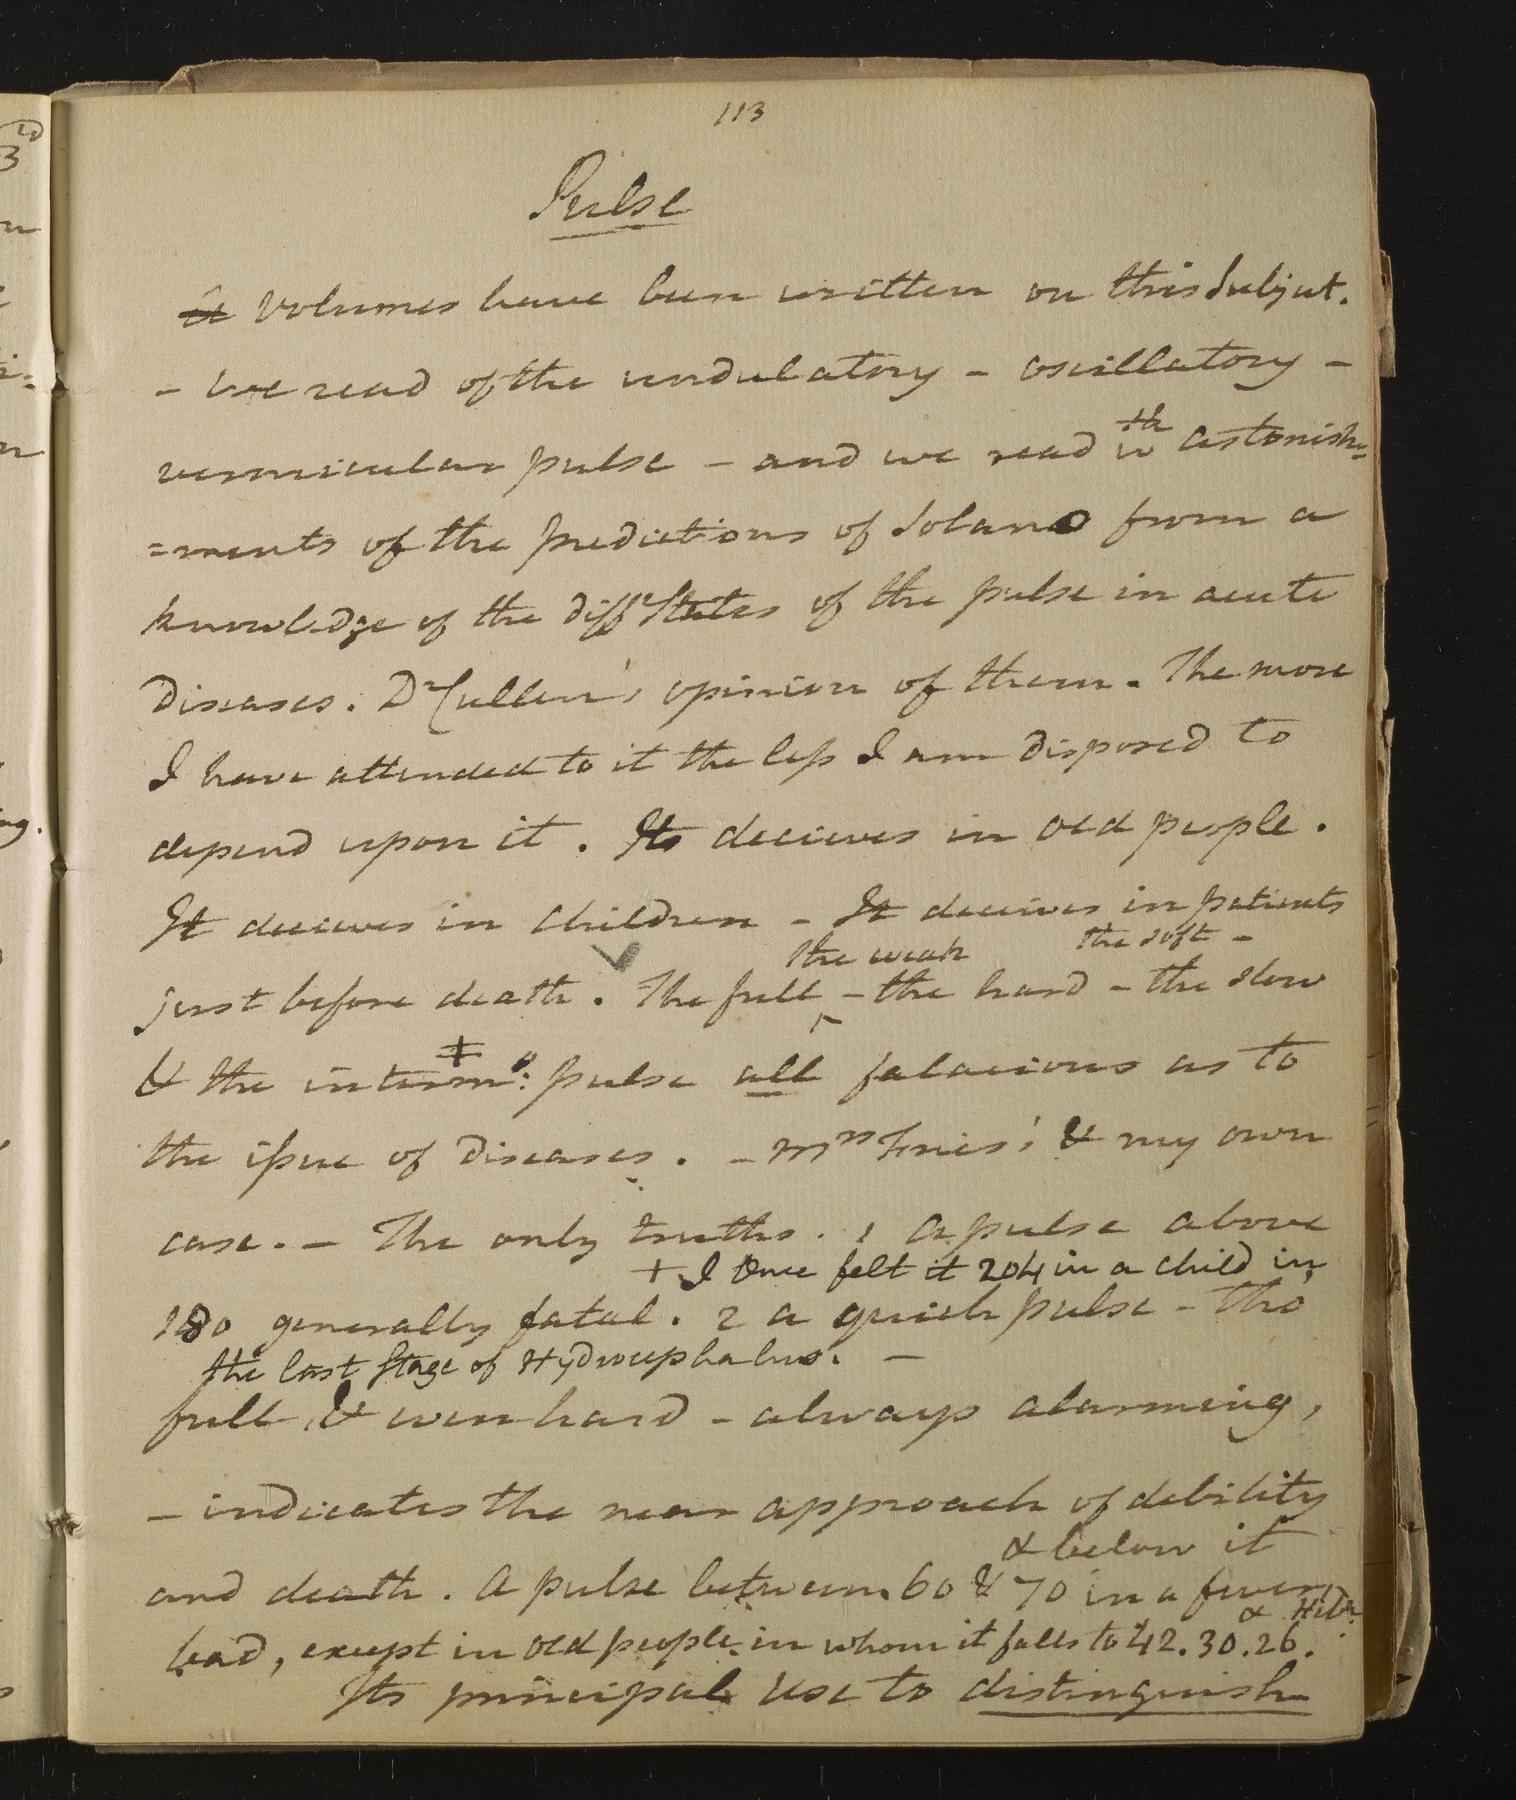 113
Pulse
Volumes have been written on this Subject.
- we read of the undulatory - oscillatory -
vermicular pulse - and we read wth astonish=
=ments of the predictions of Solano from a
knowledge of the difft States of the pulse in acute
Diseases. Dr Cullen's opinion of them. The more
I have attended to it the less I am disposed to
depend upon it. Its decieves in old people.
It decieves in children - It decieves in patients
the weak the soft -
just before death. The full - the hard - the slow
& the interm: pulse all falacious as to
the issue of diseases. - Mrs Fries' & my own
case. - The only truths. 1 A pulse above
+ I Once felt it 204 in a child in
180 generally fatal. 2 a quick pulse - tho
the last Stage of Hydrocephalus. -
full & even hard - always alarming,
- indicates the near approach of debility
and death. A pulse between 60 & 70 in a fever,
& below it
bad, except in old people in whom it falls to 42. 30. 26.
Its principal use to distinguish